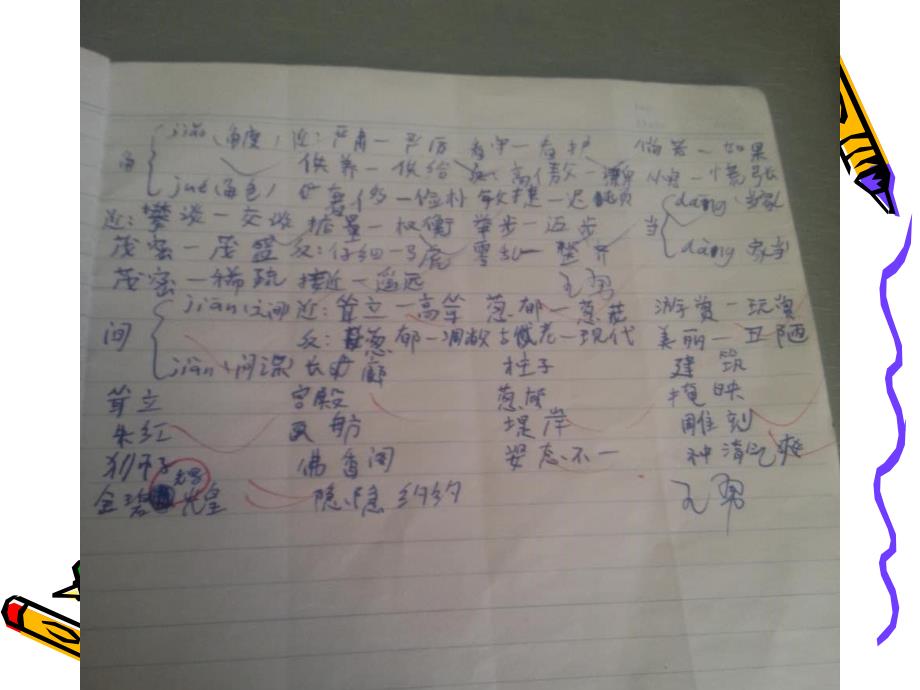 角 jiǎo(角度) 近:严肃—严厉 看守—看护 倘若—如果
供养—供给 反: 高傲— —慌张
jué(角色) 俭朴 敏捷—迟
近:攀谈—交谈 掂量—权衡 举步—迈步 当 dāng 当家
茂密—茂盛 反:仔细—马虎 零乱—整齐 dàng 家当
茂密—稀疏 接近—遥远
间 jiān(之间) 近:耸立—高耸 葱郁—葱茏 游赏—玩赏
反:葱郁—凋敝 —现代 美丽—丑陋
jiàn 长廊 柱子 建筑
耸立 宫殿 葱郁 掩映
朱红 画舫 堤岸 雕刻
狮子 佛香阁 姿态不一 神清气爽
金碧 煌 隐隐约约